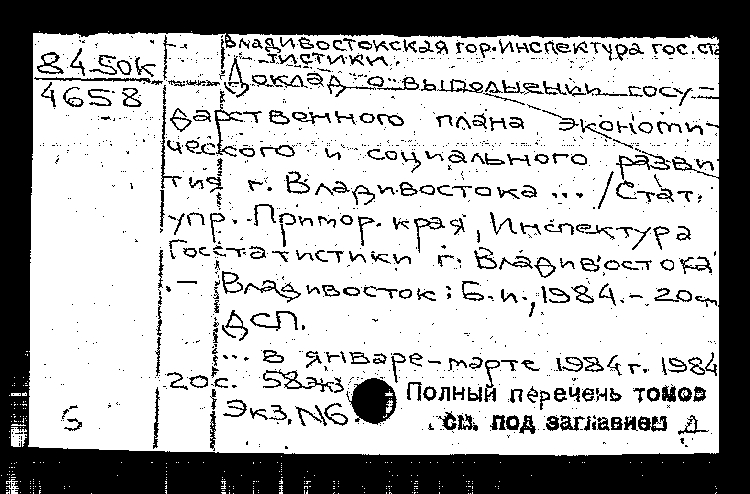 Владивостокская гор. инспектура гос. ста
тистики.
84-50к
4658
Доклад о выполнении госу-
дарственного плана экономи-
ческого и социального разви
тия г. Владивостока ... / Стат.
упр. Примор. края, Инспектура
Госстатистики г. Владивостока
. - Владивосток: Б.и., 1984. - 20см
ДСП.
... в январе-марте 1984 г. 1984
20с. 58экз
Экз. N6
Полный перечень томов
см. под заглавием Д